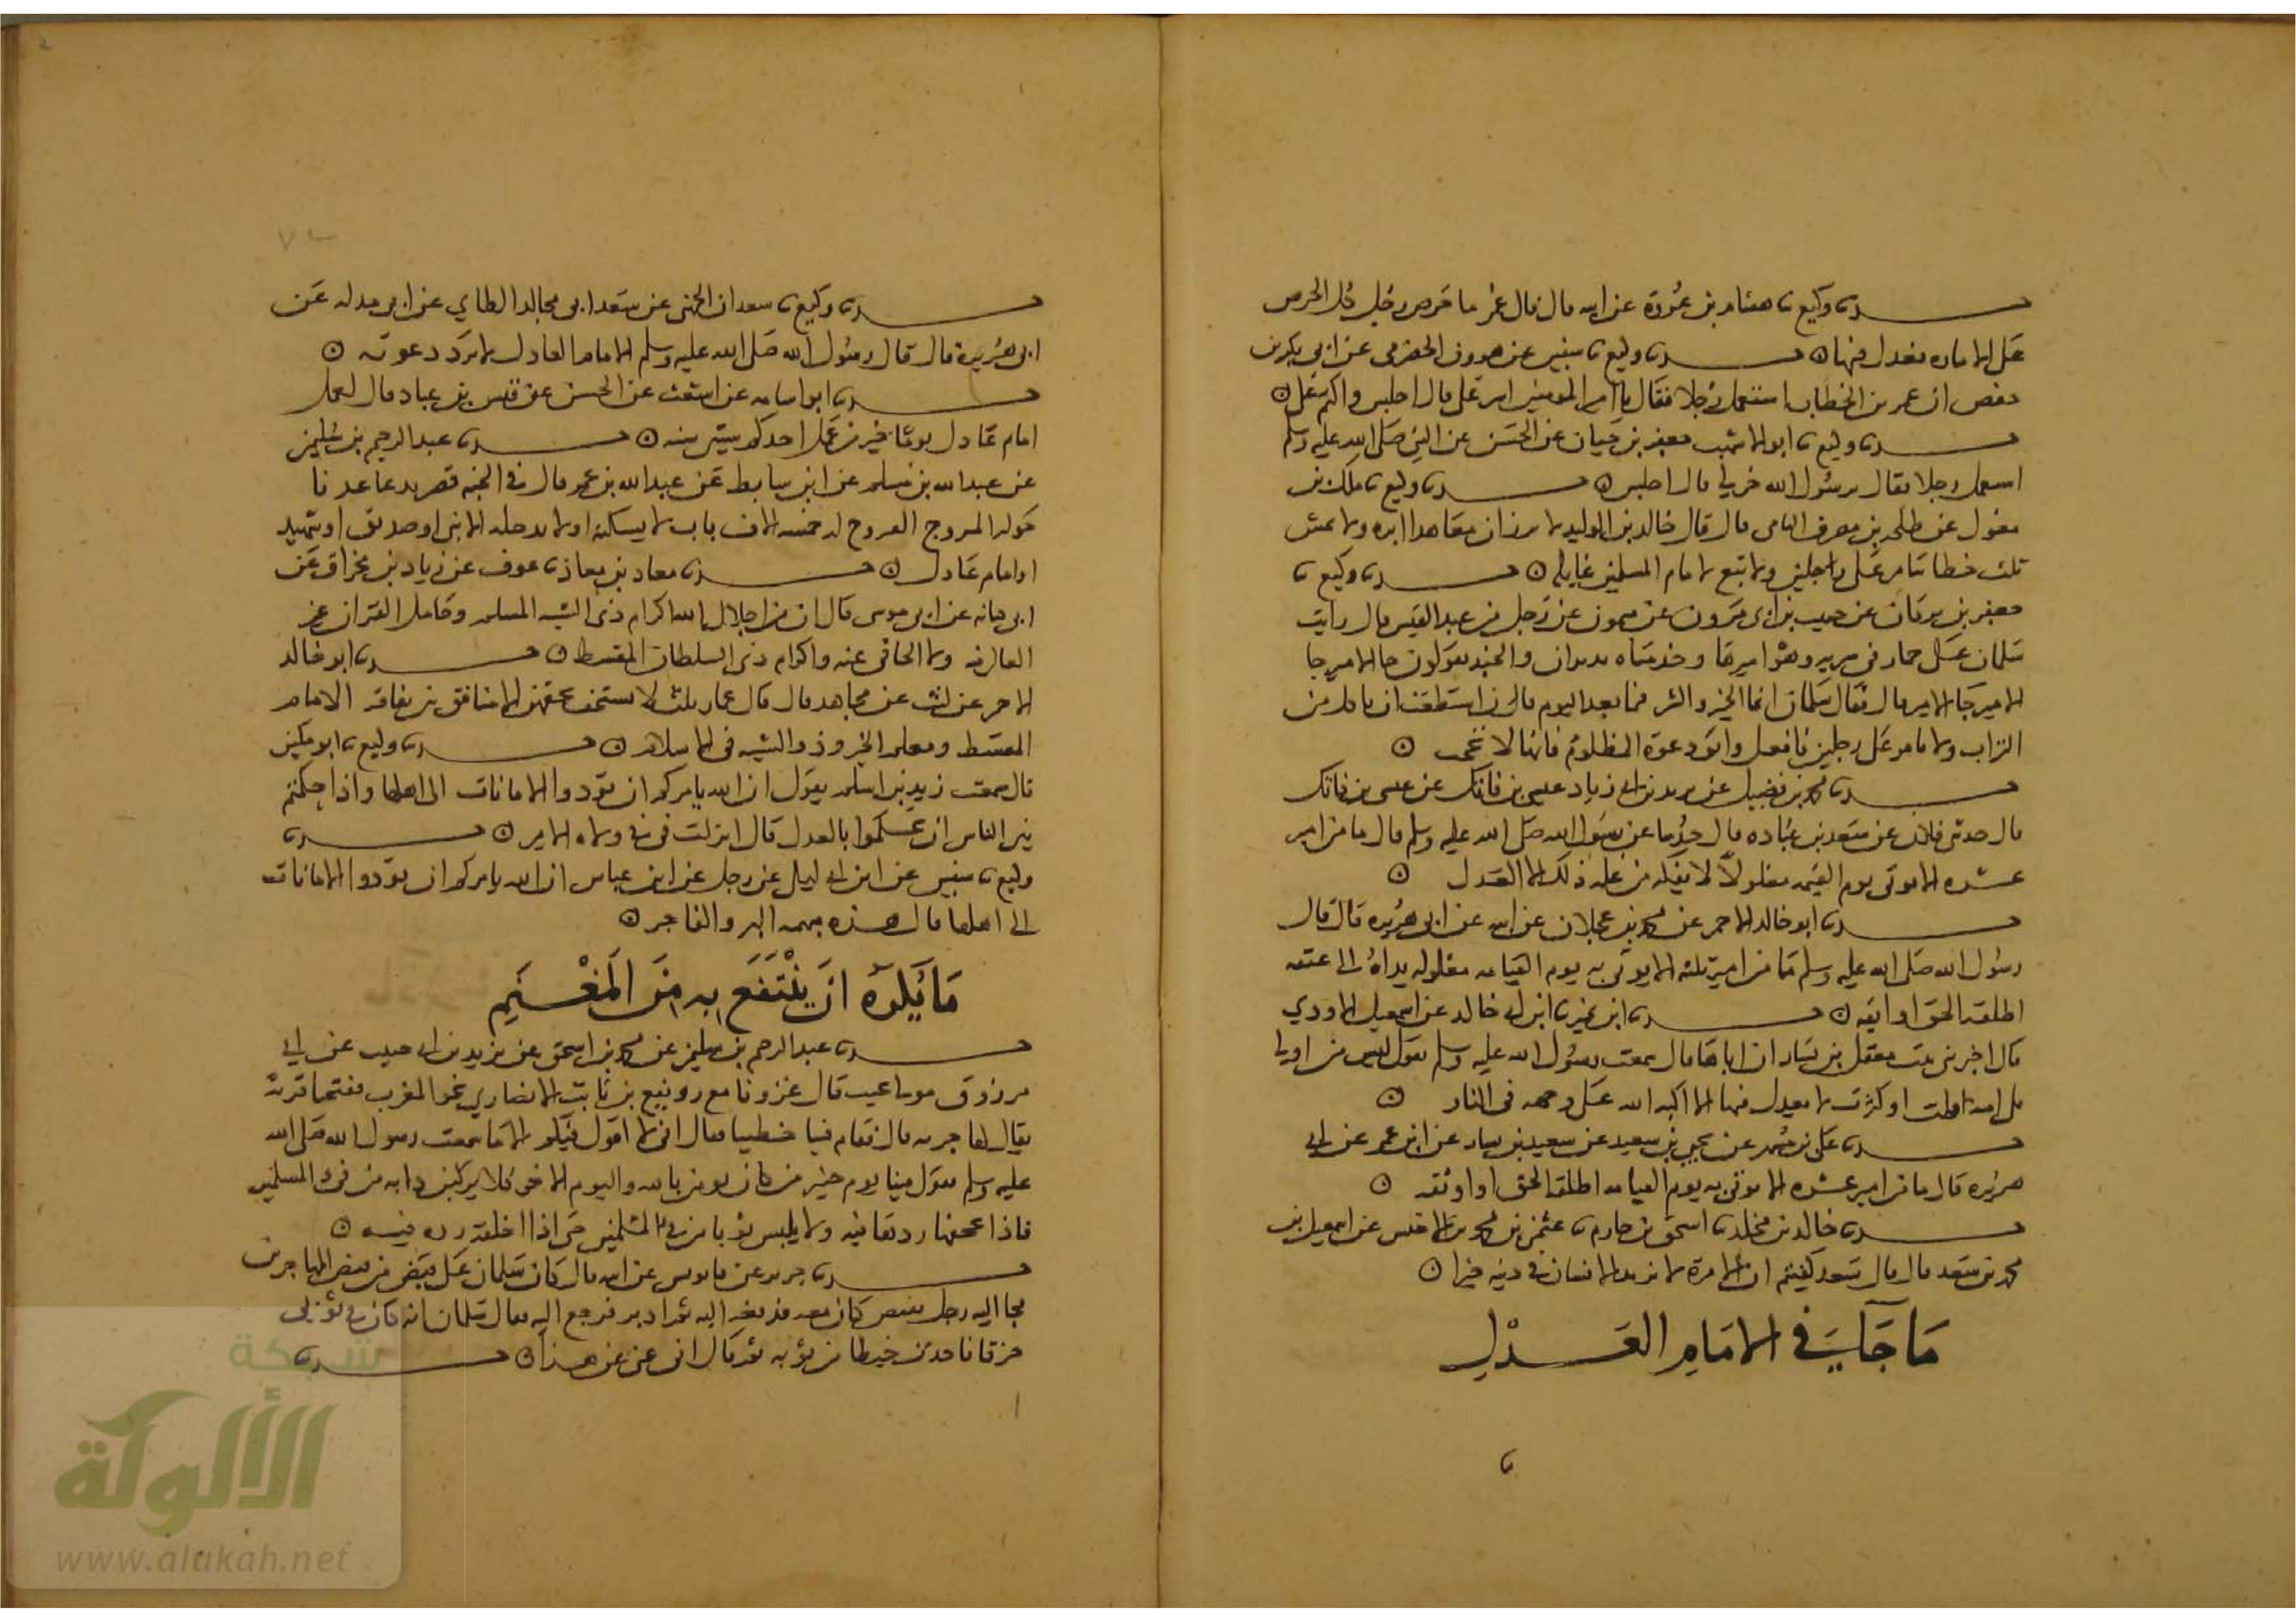 حدثنا وكيع نا هشام بن عروة عن ابيه قال قال عمر ما حرص رجل كل الحرص
على الاماره فعدل فيها ه حدثنا وكيع نا سفين عن هرون الحضرمي عن ابي بكر بن
حفص ان عمر بن الخطاب استعمل رجلا فقال يا امير المومنين اشر علي قال اجلس واكتم علي ه
حدثنا وكيع نا ابو الاشهب جعفر بن حيان عن الحسن عن النبي صلى الله عليه وسلم
استعمل رجلا فقال يرسول الله خر لي قال اجلس ه حدثنا وكيع نا ملك بن
مغول عن طلحه بن مصرف اليامي قال قال خالد بن الوليد لا ترزان معاهدا ابره ولا تمش
ثلث خطا تتامر على رجلين ولا تبغ لامام المسلمين غايله ه حدثنا وكيع نا
جعفر بن برقان عن حبيب بن ابي مرزوق عن ميمون عن رجل من عبد القيس قال رايت
سلمان على حمار في سريه وهو اميرها وخدمتاه تذبذبان والجند يقولون جا الامير جا
الامير جا الامير قال فقال سلمان انما الخير والشر فيما بعد اليوم قال فان استطعت ان تاكل من
التراب ولا تامر على رجلين فافعل واتق دعوة المظلوم فانها لا تحجب ه
حدثنا محمد بن فضيل عن يزيد بن ابي زياد عيسى بن فائك عن عيسى بن فائك
قال حدثني فلان عن سعد بن عباده قال عن رسول الله صلى الله عليه وسلم قال ما من امير
عشره الا يوتى يوم القيمه مغلولا لا يفكه من غله ذلك الا العدل ه
حدثنا ابو خالد الاحمر عن محمد بن عجلان عن ابيه عن ابي هريره قال قال
رسول الله صلى الله عليه وسلم ما من امير ثلثه الا يوتى به يوم القيامه مغلوله يداه الى عنقه
اطلقه الحق او اوبقه ه حدثنا ابن نمير نا ابن ابي خالد عن اسمعيل الاودي
قال اخبرتني بنت معقل بن يسار ان اباها قال سمعت رسول الله عليه وسلم يقول ليس من والي
يلي امه قلت او كثرت لا يعدل فيها الا اكبه الله على وجهه في النار ه
حدثنا علي بن مسهر عن يحيى بن سعيد عن سعيد بن يسار عن ابن عمر عن ابي
هريره قال ما من امير عشره الا يوتى به يوم القيامه اطلقه الحق او اوثقه ه
حدثنا خالد بن مخلد نا اسحق بن حازم نا عثمن بن محمد بن الاخنس عن اسمعيل بن
محمد بن سعد قال قال سعد كفيتم ان الامرة لا تزيد الانسان في دينه خيرا ه
ما جاء في الامام العدل
حدثنا وكيع نا سعدان الجهني عن سعد ابي مجالد الطاي عن ابي مدله عن
ابي هريرة قال قال رسول الله صلى الله عليه وسلم الامام العادل لا ترد دعوته ه
حدثنا ابو اسامه عن اشعث عن الحسن عن قيس بن عباد قال لعمل
امام عادل يوما خير من عمل احدكم ستين سنه ه حدثنا عبد الرحيم بن سليمن
عن عبد الله بن مسلم عن ابن سابط عن عبد الله بن عمر قال في الجنه قصر يدعا عدنا
حوله المروج البروج له خمسه الاف باب لا يسكنه او لا يدخله الا نبي او صديق او شهيد
او امام عادل ه حدثنا معاذ بن معاذ نا عوف عن زياد بن مخراق عن
ابي كنانه عن ابي موسى قال ان من اجلال الله اكرام ذي الشيبه المسلم وحامل القران غير
الغالي فيه ولا الجافي عنه واكرام ذي السلطان المقسط ه حدثنا ابو خالد
الاحمر عن ليث عن مجاهد قال قال عمار ثلثه لا يستخف بحقهن الا منافق بين نفاقه الامام
المقسط ومعلم الخير وذو الشيبه في الاسلام ه حدثنا وكيع نا ابو مكين
قال سمعت زيد بن اسلم يقول ان الله يامركم ان تودوا الامانات الى اهلها واذا حكمتم
بين الناس ان تحكموا بالعدل قال انزلت في ولاه الامر ه حدثنا
وكيع نا سفين عن ابن ابي ليلى عن رجل عن ابن عباس ان الله يامركم ان تودوا الامانات
الى اهلها قال هذه مبهمه البر والفاجر ه
ما يكره ان ينتفع به من المغنم
حدثنا عبد الرحيم بن سليمن عن محمد بن اسحق عن يزيد بن ابي حبيب عن ابي
مرزوق مولى تجيب قال غزونا مع رويفع بن ثابت الانصاري نحو المغرب ففتحنا قرية
يقال لها جربه قال فقام فينا خطيبا فقال اني لا اقول فيكم الا ما سمعت رسول الله صلى الله
عليه وسلم يقول فينا يوم خيبر من كان يومن بالله واليوم الاخر فلا يركبن دابه من فيء المسلمين
فاذا اعجفها ردها فيه ولا يلبس ثوبا من فيء المسلمين حتى اذا اخلقه رده فيه ه
حدثنا جرير عن قابوس عن ابيه قال كان سلمان على قبض من قبض المهاجرين
فجا اليه رجل بقبض كان معه فدفعه اليه ثم ادبر فرجع اليه فقال سلمان انه كان في ثوبي
خرق فاخذت خيطا من ثوبه ثم قال اني غني عن هذا ه حدثنا
شبكة
الألوكة
www.alukah.net